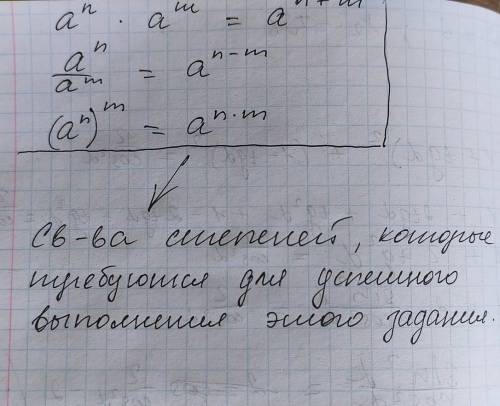 aⁿ · aᵐ = aⁿ⁺ᵐ
aⁿ/aᵐ = aⁿ⁻ᵐ
(aⁿ)ᵐ = aⁿ·ᵐ
Св-ва степеней, которые
требуются для успешного
выполнения этого задания.